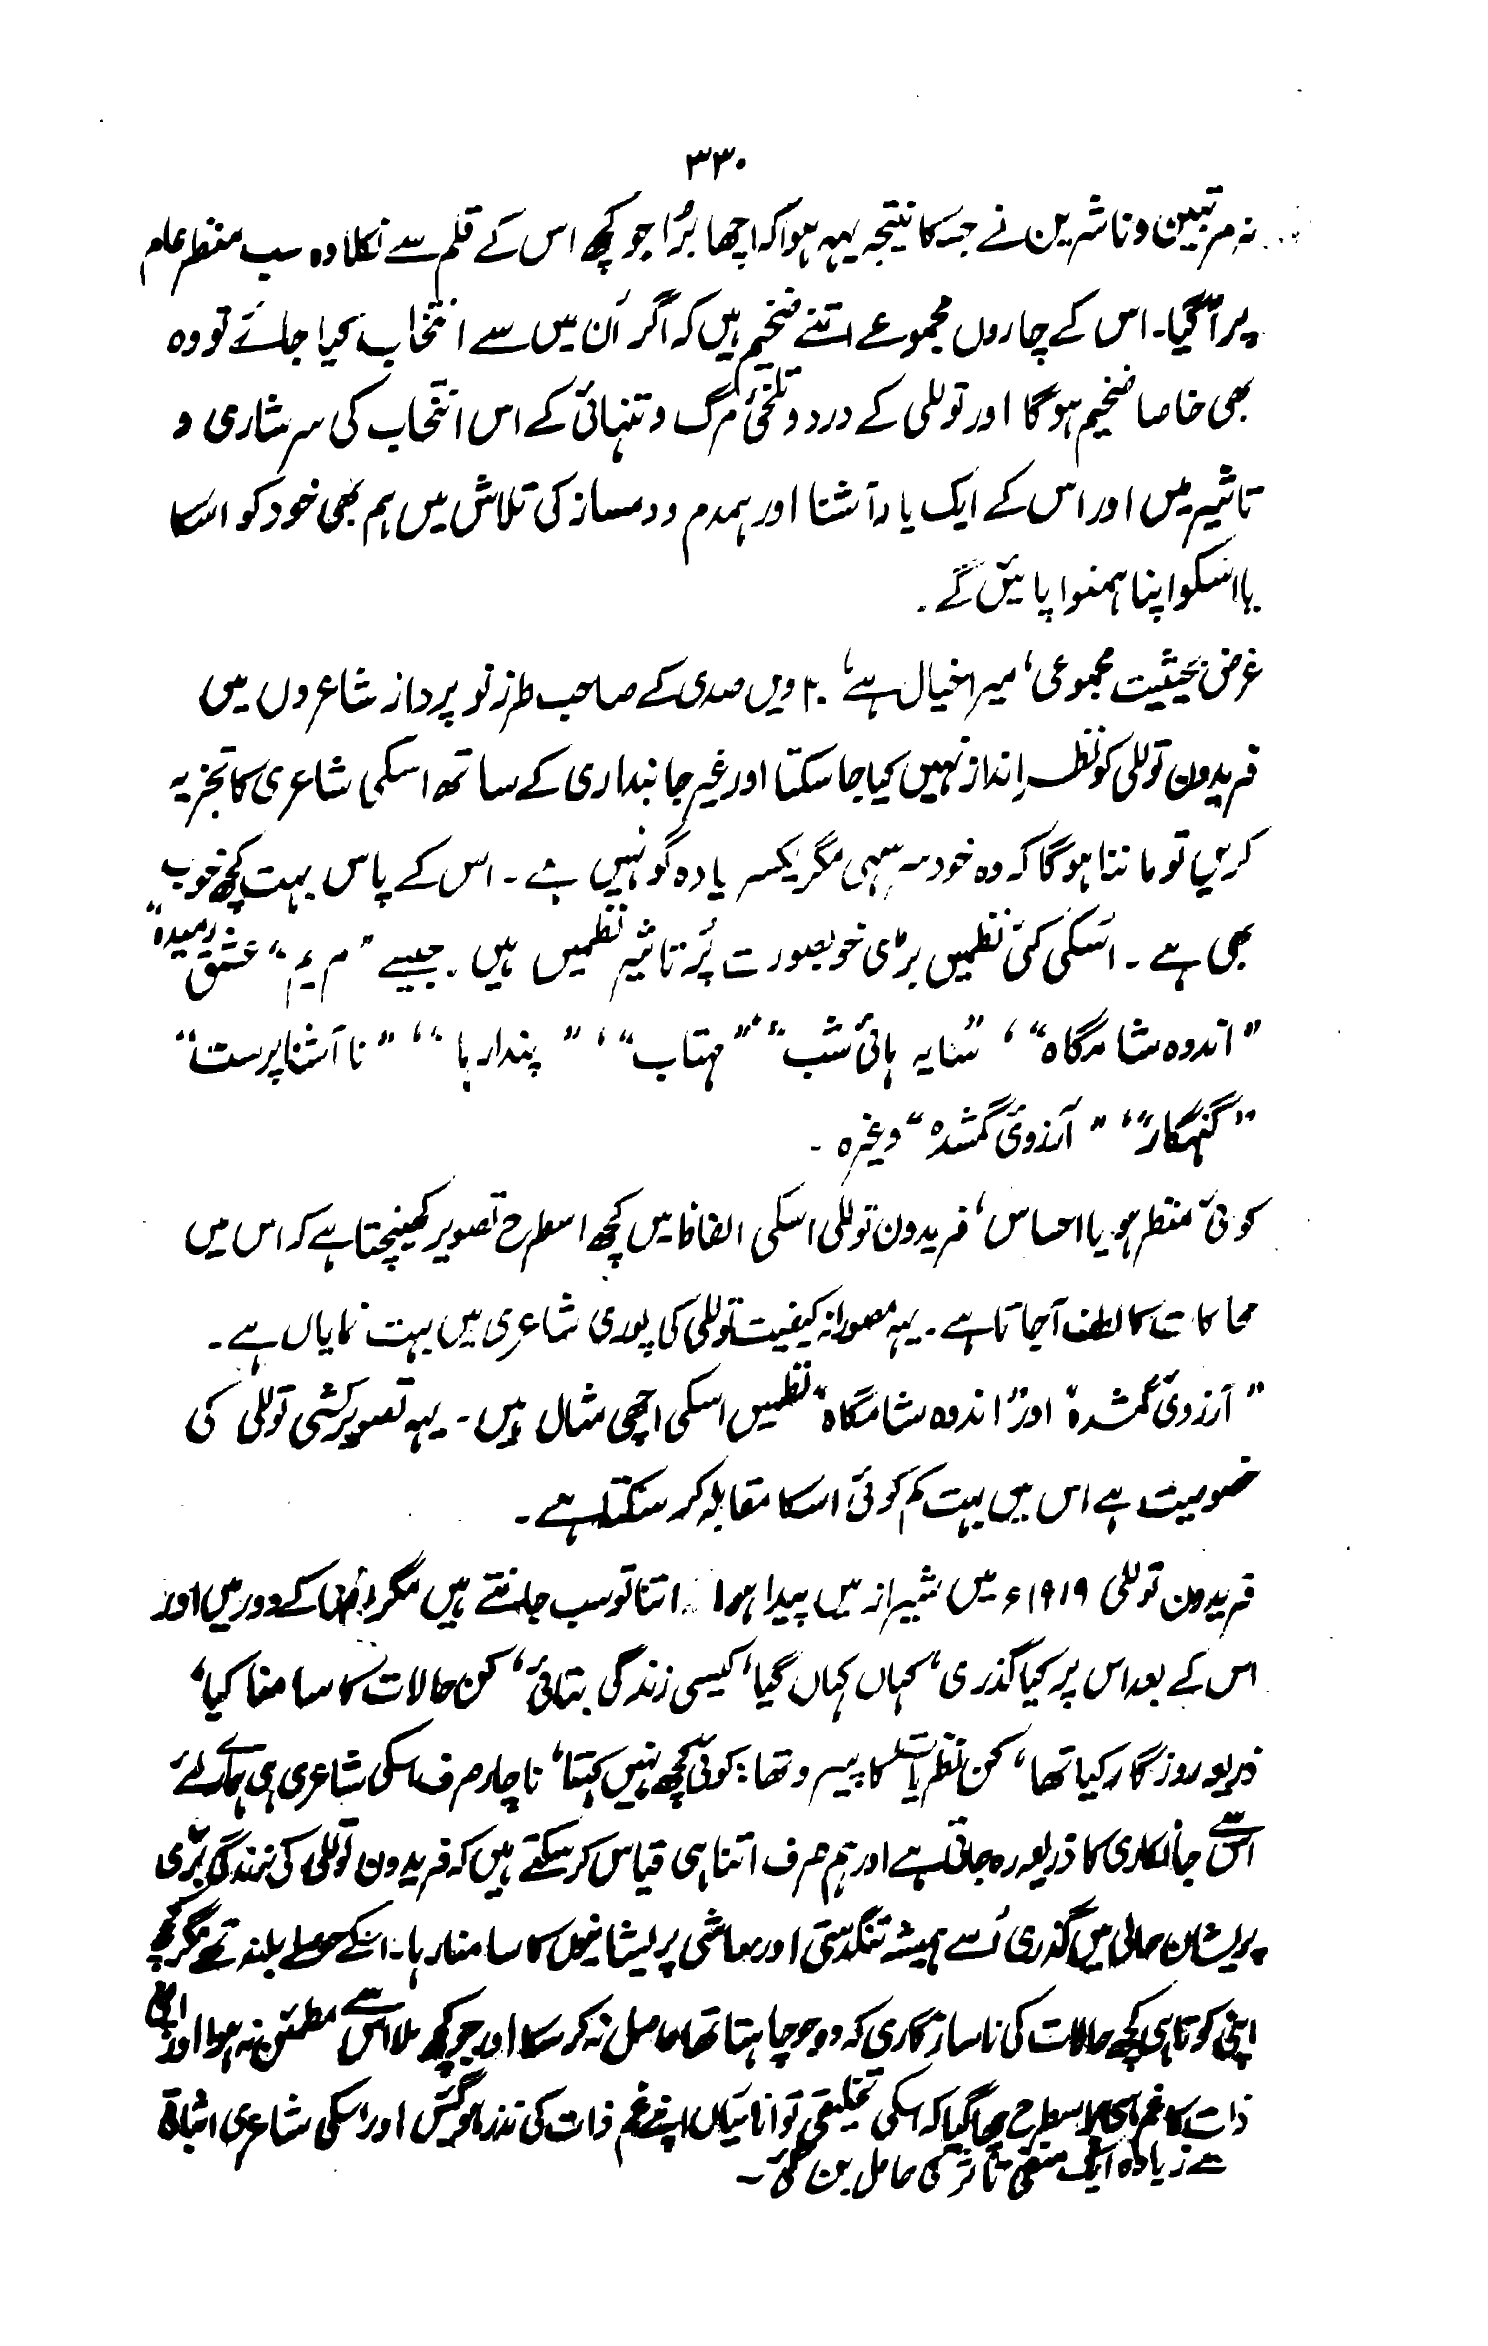 ۳۳۰
نہ مرتبین و ناشرین نے جسکا نتیجہ یہہ ہوا کہ اچھا بُرا جو کچھ اس کے قلم سے نکلا وہ سب منظر عام
پر آگیا۔ اس کے چاروں مجموعے اتنے ضخیم ہیں کہ اگر اُن میں سے انتخاب کیا جائے تو وہ
بھی خاصا ضخیم ہوگا اور توللی کے درد و تلخیٔ مرگ و تنہائی کے اس انتخاب کی سرشاری و
تاثیر میں اور اس کے ایک یار آشنا اور ہمدم و دمساز کی تلاش میں ہم بھی خود کو اسکا
یا اسکو اپنا ہمنوا پائیں گے۔
غرض بحیثیت مجموعی، میرا خیال ہے، ۲۰ ویں صدی کے صاحب طرز نو پرداز شاعروں میں
فریدون توللی کو نظر انداز نہیں کیا جا سکتا اور غیر جانبداری کے ساتھ اسکی شاعری کا تجزیہ
کریں تو ماننا ہوگا کہ وہ خود سر سہی مگر یکسر یاوہ گو نہیں ہے۔ اس کے پاس بہت کچھ خوب
بھی ہے۔ اسکی کئی نظمیں بڑی خوبصورت پُر تاثیر نظمیں ہیں۔ جیسے "مریم" "عشق رمیدہ"
"اندوہ شامگاہ"، "سایہ ہائی شب" "مہتاب"، "پندارہا"، "ناآشنا پرست"
"گنہکار"، "آرزوئ گمشدہ" وغیرہ۔
کوئی منظر ہو یا احساس، فریدون توللی اسکی الفاظ میں کچھ اسطرح تصویر کھینچتا ہے کہ اس میں
محاکات کا لطف آجاتا ہے۔ یہہ مصورانہ کیفیت توللی کی پوری شاعری میں بہت نمایاں ہے۔
"آرزوئ گمشدہ" اور "اندوہ شامگاہ" نظمیں اسکی اچھی مثال ہیں۔ یہہ تصویر کشی توللی کی
خصوصیت ہے اس میں بہت کم کوئی اسکا مقابلہ کر سکتا ہے۔
فریدون توللی ۱۹۱۹ء میں شیراز میں پیدا ہوا۔ اتنا تو سب جانتے ہیں مگر کے دور میں اور
اس کے بعد اس پر کیا گذری، کہاں کہاں گیا، کیسی زندگی بتائی، کن حالات کا سامنا کیا،
ذریعہ روزگار کیا تھا، کن نظریات کا پیرو تھا: کوئی کچھ نہیں کہتا، ناچار صرف اسکی شاعری ہی ہمارے لئے
اس سے جانکاری کا ذریعہ رہ جاتی ہے اور ہم صرف اتنا ہی قیاس کر سکتے ہیں کہ فریدون توللی کی زندگی بڑی
پریشان حالی میں گذری اُسے ہمیشہ تنگدستی اور معاشی پریشانیوں کا سامنا رہا۔ اسکے حوصلے بلند تھے مگر کچھ
اپنی کوتاہی کچھ حالات کی ناسازگاری کہ وہ جو چاہتا تھا حاصل نہ کر سکا اور جو کچھ ملا اس سے مطمئن نہ ہوا اور اپنی
ذات کا غم اسطرح چھا گیا کہ اسکی تخلیقی توانائیاں اپنے غم ذات کی نذر ہو گئیں اور اسکی شاعری اثباتی
سے زیادہ ایک منفی تاثر کی حامل بن گئی۔